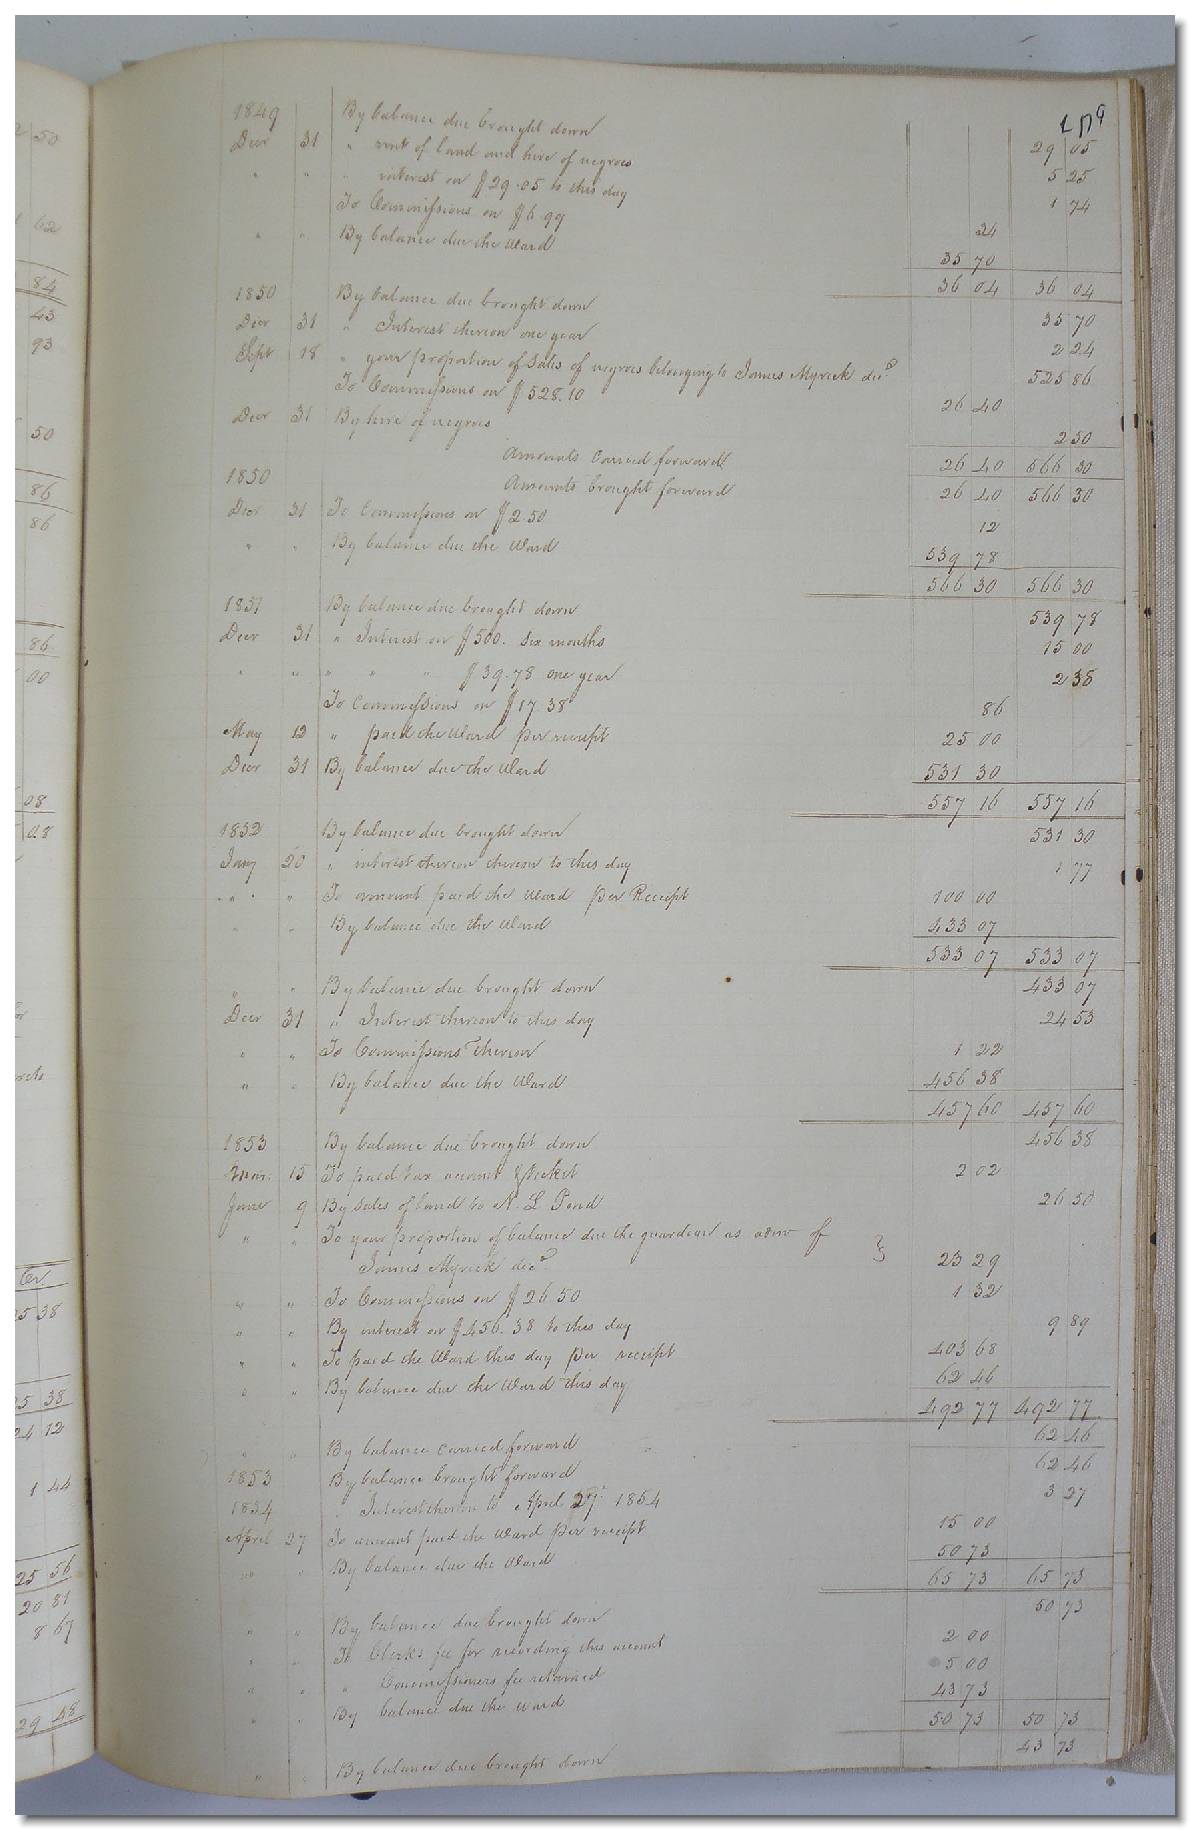 50
62
84
43
93
50
86
86
86
00
08
08
Cr.
25 38
25 38
24 12
1 44
25 56
20 81
8 67
29 48
1849 By balance due brought down 29 05
Decr 31 " rent of land and hire of negroes 5 25
" " " interest on $29.05 to this day 1 74
To Commissions on $6.99 34
" " By balance due the Ward 35 70
36 04 36 04
1850 By balance due brought down 35 70
Decr 31 " Interest thereon one year 2 24
Sept 18 " your proportion of sales of negroes belonging to James Myrick decd 525 86
To Commissions on $528.10 26 40
Decr 31 By hire of negroes 2 50
Amounts carried forward 26 40 566 30
1850 Amounts brought forward 26 40 566 30
Decr 31 To Commissions on $2.50 12
" " By balance due the Ward 539 78
566 30 566 30
1851 By balance due brought down 539 78
Decr 31 " Interest on $500. Six months 15 00
" " " " " $39.78 one year 2 38
To Commissions on $17 38 86
May 12 " paid the Ward per receipt 25 00
Decr 31 By balance due the Ward 531 30
557 16 557 16
1852 By balance due brought down 531 30
Jany 20 " interest thereon thereon to this day 1 77
" " " To amount paid the Ward per Receipt 100 00
" " By balance due the Ward 433 07
533 07 533 07
" " By balance due brought down 433 07
Decr 31 " Interest thereon to this day 24 53
" " To Commissions thereon 1 22
" " By balance due the Ward 456 38
457 60 457 60
1853 By balance due brought down 456 38
15 To paid tax account & ticket 2 02
June 9 By sales of land to N. L. Pond 26 50
" " To your proportion of balance due the guardian as admr of }
James Myrick decd 23 29
" " To Commissions on $26 50 1 32
" " By interest on $456.38 to this day 9 89
" " To paid the Ward this day per receipt 403 68
" " By balance due the Ward this day 62 46
492 77 492 77
" " By balance carried forward 62 46
1853 By balance brought forward 62 46
1854 " Interest thereon to April 27th 1854 3 27
April 27 To amount paid the Ward per receipt 15 00
" " By balance due the Ward 50 73
65 73 65 73
" " By balance due brought down 50 73
" " To Clerks fee for recording this account 2 00
" " " Commissioners fee retained 5 00
" " By balance due the Ward 43 73
50 73 50 73
" " By balance due brought down 43 73